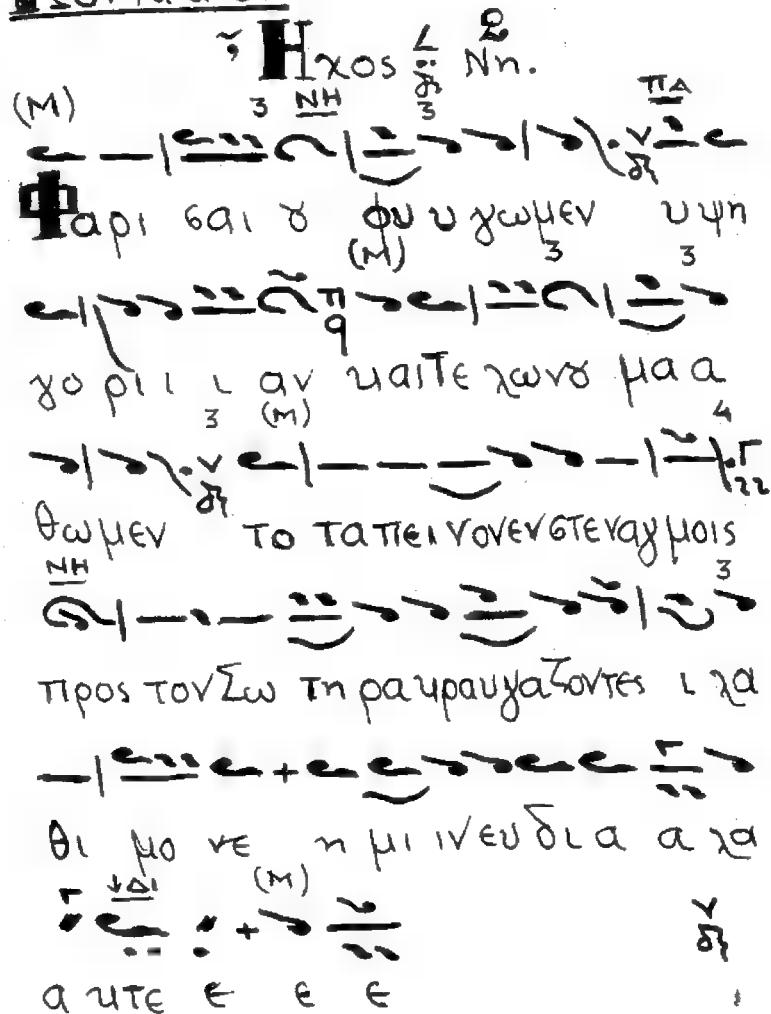 Ἦχος δ Νη.
(Μ) 3 ΝΗ 3 ΠΑ
Φαρι σαι ȣ φυ υ γωμεν υψη
(Μ) 3 3
γο ρι ι ι αν και Τε λωνȣ μα α
3 (Μ) 4
θωμεν το ταπεινον εν στεναγμοις
ΝΗ 3
προς τον Σω τη ρα κραυγαζοντες ι λα
θι μο νε η μι ιν ευ δι α α λα
ΔΙ (Μ)
α κτε ε ε ε